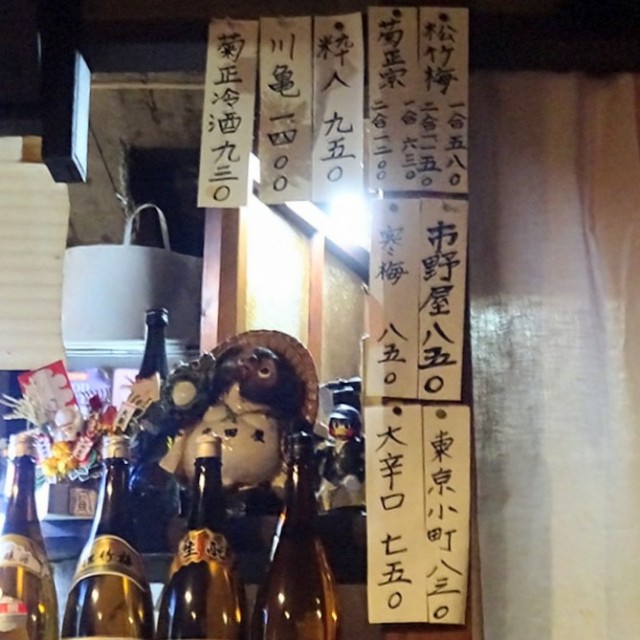 松竹梅 一合 五八〇
二合 一一五〇
菊正宗 一合 六三〇
二合 一二〇〇
粋人 九五〇
川亀 一四〇〇
菊正冷酒 九三〇
市野屋 八五〇
寒梅 八五〇
東京小町 八三〇
大辛口 七五〇